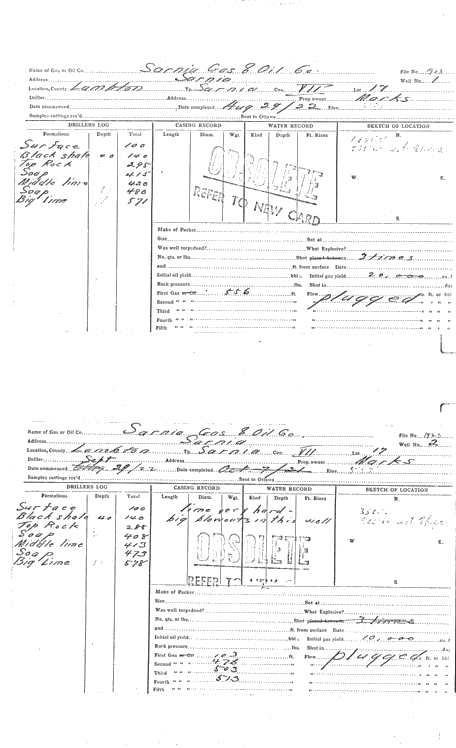 Name of Gas or Oil Co. Sarnia Gas & Oil Co. File No.
Address Sarnia Well No. 1
Location, County Lambton Tp. Sarnia Con. VII Lot 17
Driller Address Prop. owner Marks
Date commenced Date completed Aug 29/22 Elev.
Samples cuttings rec'd. Sent to Ottawa
DRILLERS LOG CASING RECORD WATER RECORD SKETCH OF LOCATION
Formations Depth Total Length Diam. Wgt. Kind Depth Ft. Rises N.
Surface 100
Black shale 40 140
Top Rock 295
Soap 415
Middle lime 430
Soap 480
Big Lime 571
W. E.
OBSOLETE
REFER TO NEW CARD
S.
Make of Packer
Size Set at
Was well torpedoed? What Explosive?
No. qts. or lbs. Shot 3 times
and ft. from surface Date
Initial oil yield bbl. Initial gas yield 20,000 cu. f
Rock pressure lbs. Shut in
First Gas 556 ft. Flow plugged
Second " "
Third " "
Fourth " "
Fifth " "
Name of Gas or Oil Co. Sarnia Gas & Oil Co. File No.
Address Sarnia Well No. 2
Location, County Lambton Tp. Sarnia Con. VII Lot 17
Driller Sept Address Prop. owner Marks
Date commenced 29/22 Date completed Oct Elev.
Samples cuttings rec'd. Sent to Ottawa
DRILLERS LOG CASING RECORD WATER RECORD SKETCH OF LOCATION
Formations Depth Total Length Diam. Wgt. Kind Depth Ft. Rises N.
Surface 100 lime very hard-
Black shale 40 big blowouts in this well
Top Rock 285
Soap 408
Middle lime 413
Soap 473
Big Lime 578
W. E.
OBSOLETE
REFER TO
S.
Make of Packer
Size Set at
Was well torpedoed? What Explosive?
No. qts. or lbs. Shot 3 times
and ft. from surface Date
Initial oil yield bbl. Initial gas yield 10,000 cu. f
Rock pressure lbs. Shut in
First Gas 103 ft. Flow plugged
Second " " 476
Third " " 503
Fourth " " 513
Fifth " "